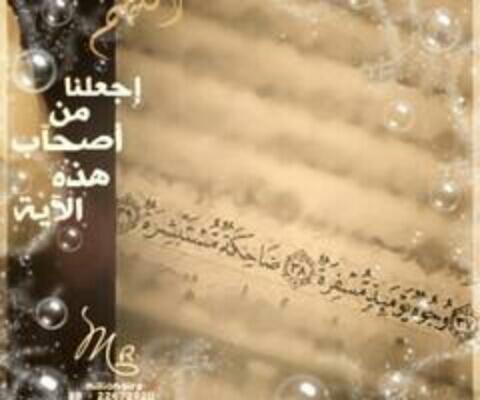 اللهم
إجعلنا
من
أصحاب
هذه
الآية
وُجُوهٌ يَوْمَئِذٍ مُّسْفِرَةٌ ٣٨ ضَاحِكَةٌ مُّسْتَبْشِرَةٌ
MR
millionaire